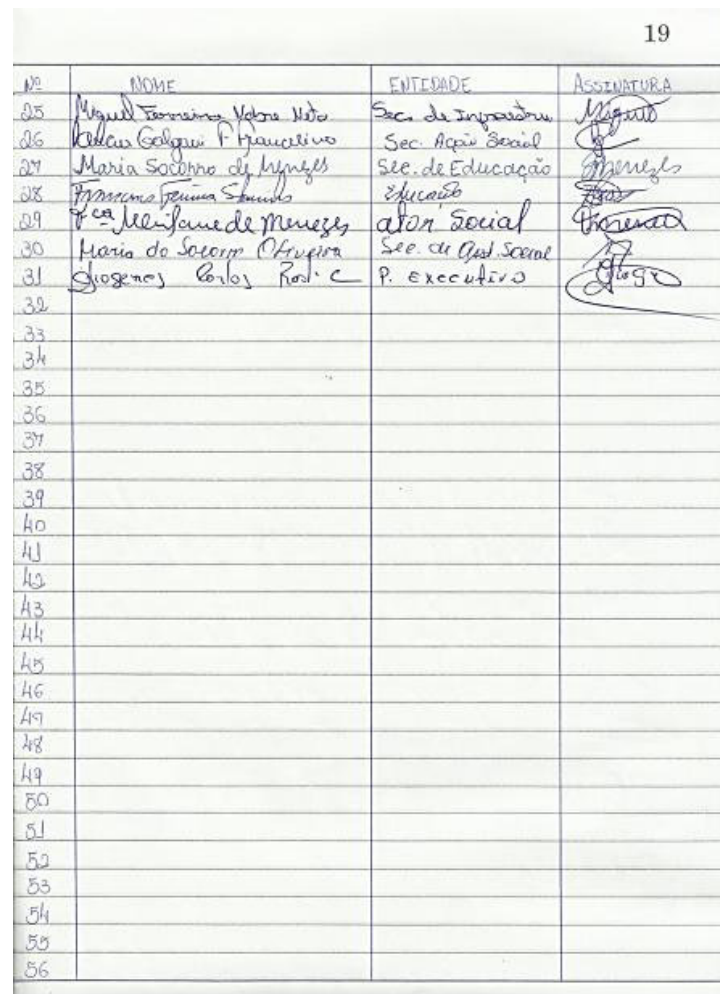 19
Nº NOME ENTIDADE ASSINATURA
25 Miguel Ferreira Nobre Neto Sec. de Infraestru Miguel
26 Francelino Sec. Ação Social
27 Maria Socorro de Menezes Sec. de Educação Menezes
28 Educação
29 Fca de Menezes ator Social
30 Maria do Socorro Oliveira Sec. de Social
31 Diogenes Carlos Rod. C P. Executivo Diog
32
33
34
35
36
37
38
39
40
41
42
43
44
45
46
47
48
49
50
51
52
53
54
55
56